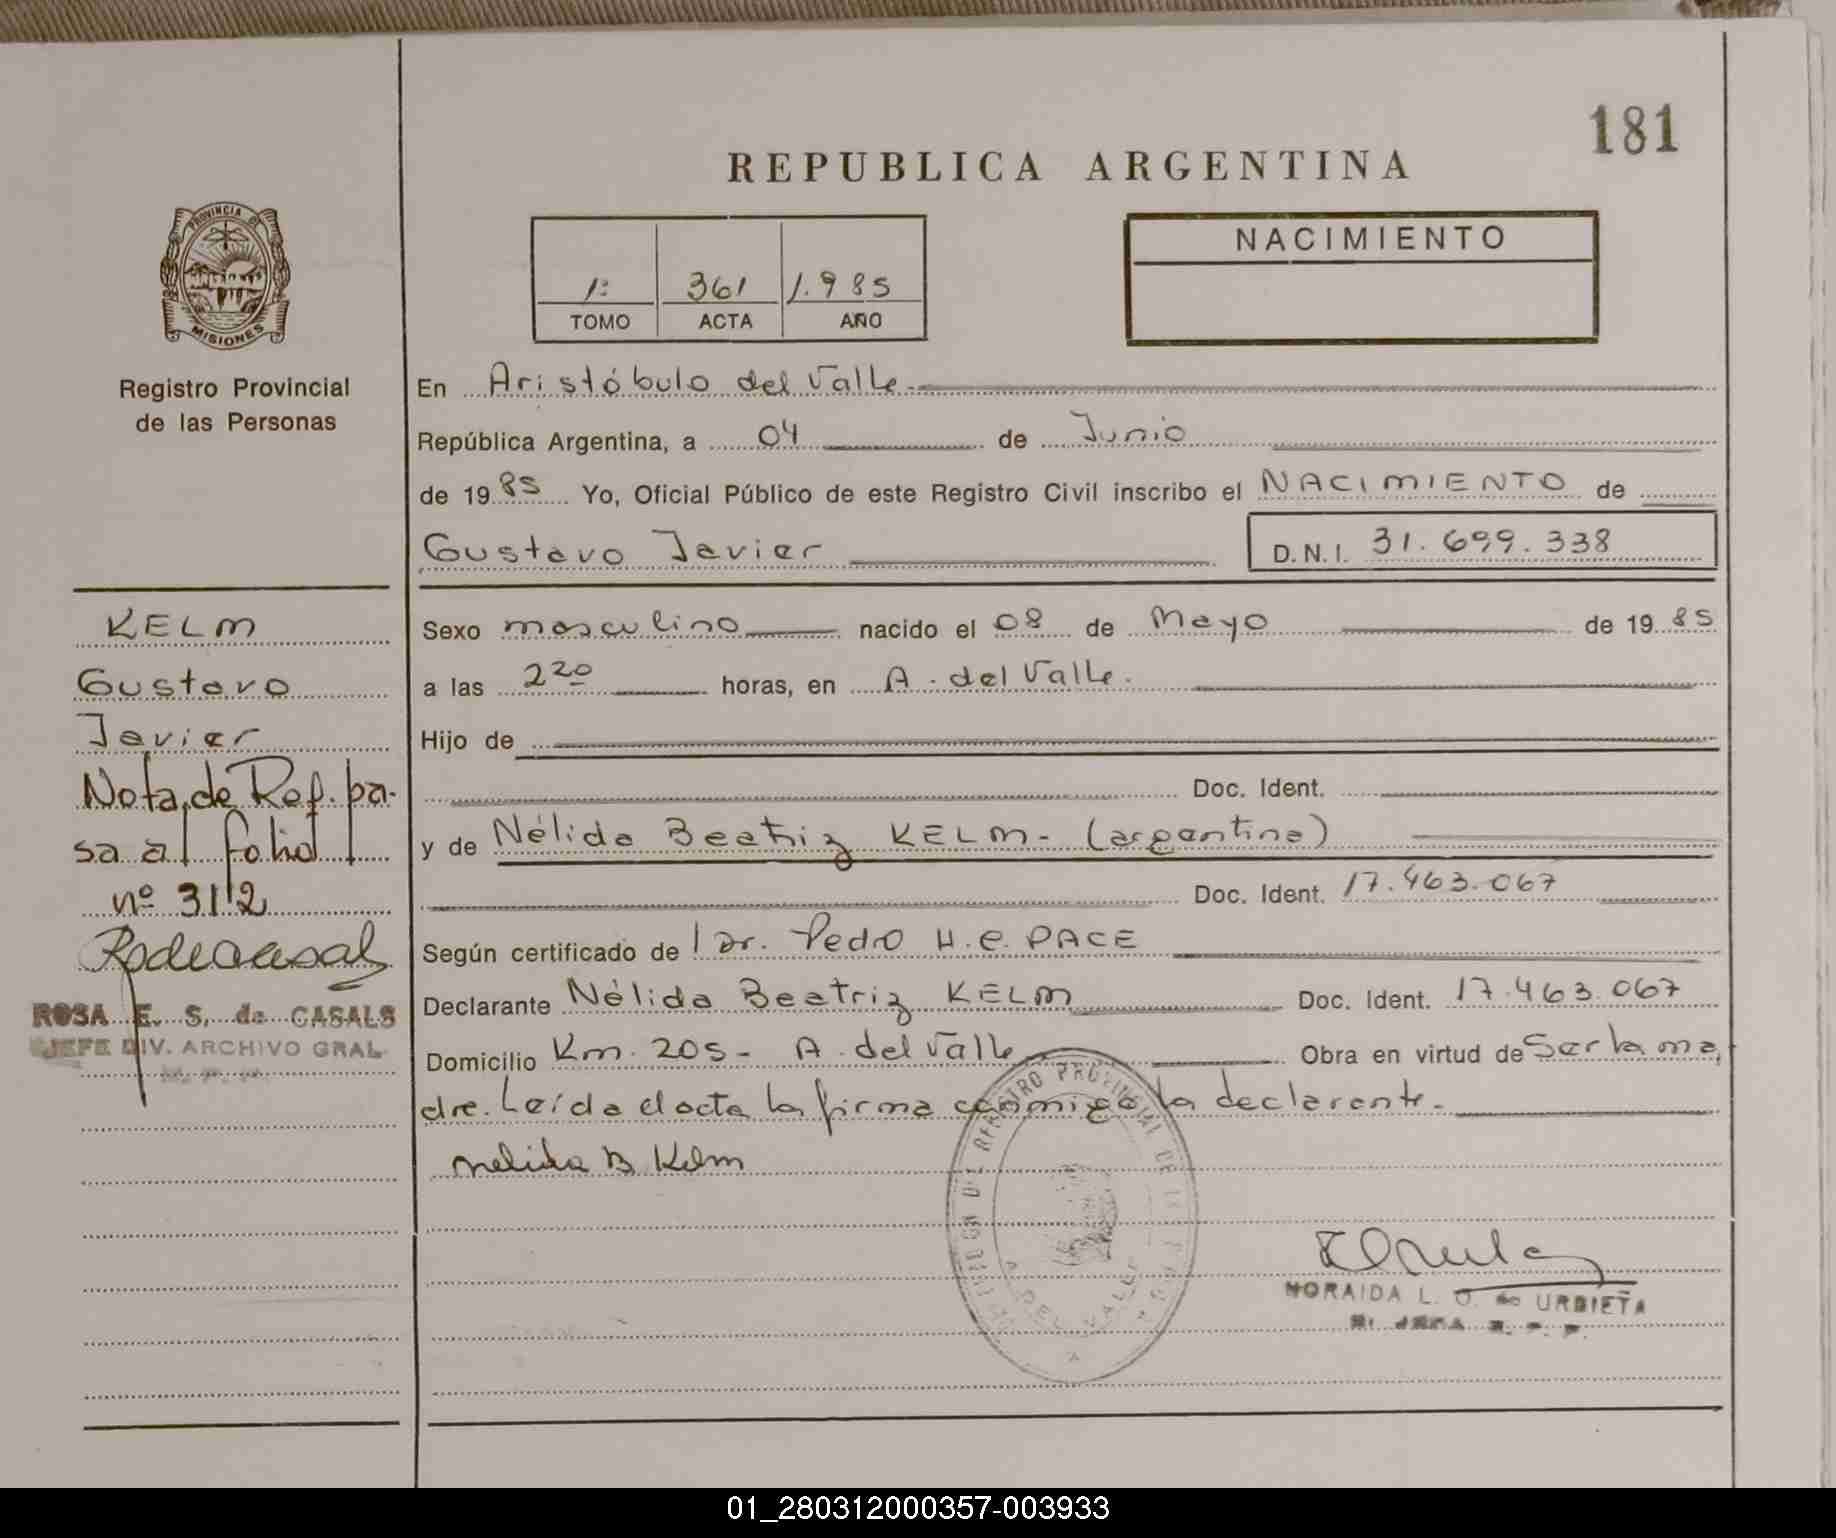 181
REPUBLICA ARGENTINA
PROVINCIA DE
MISIONES
Registro Provincial
de las Personas
1º 361 1.985
TOMO ACTA AÑO
NACIMIENTO
En Aristóbulo del Valle.
República Argentina, a 04 de Junio
de 1985 Yo, Oficial Público de este Registro Civil inscribo el NACIMIENTO de
Gustavo Javier D.N.I. 31.699.338
Sexo masculino nacido el 08 de Mayo de 1985
a las 2 20 horas, en A. del Valle.
Hijo de
Doc. Ident.
y de Nélida Beatriz KELM- (argentina)
Doc. Ident. 17.463.067
Según certificado de Dr. Pedro H.C. PACE
Declarante Nélida Beatriz KELM Doc. Ident. 17.463.067
Domicilio Km. 205- A. del Valle Obra en virtud de Ser la ma
dre. Leída el acta la firma conmigo la declarante.
Nelida B Kelm
KELM
Gustavo
Javier
Nota de Ref. pa-
sa al folio
nº 312
ROSA E. S. de CASALS
JEFE DIV. ARCHIVO GRAL.
REGISTRO PROVINCIAL DE LAS
A. DEL VALLE
NORAIDA L. O. de URBIETA
01_280312000357-003933